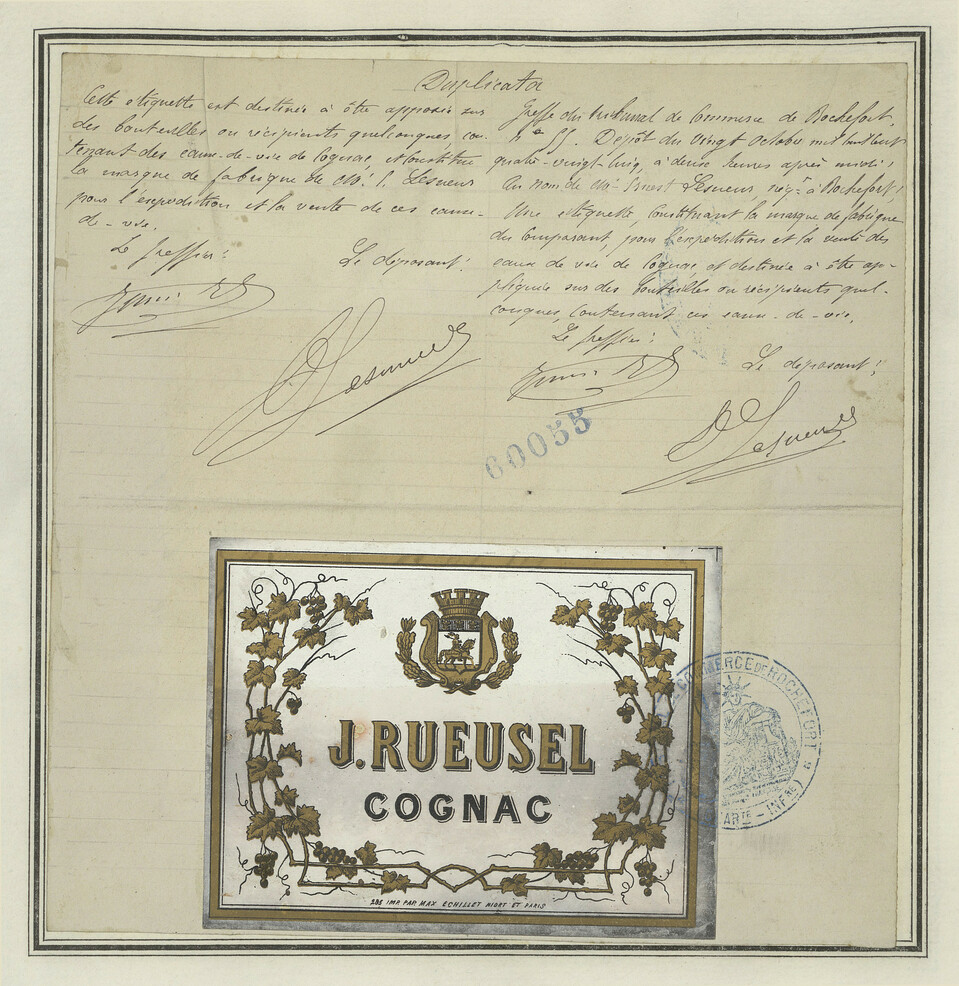 Duplicata
Cette étiquette est destinée à être apposée sur
des bouteilles ou récipients quelconques con-
tenant des eaux-de-vie de Cognac, et constitue
la marque de fabrique de Mr. E. Lesueur
pour l'expédition et la vente de ces eaux-
de-vie.
Le greffier:
Le déposant:
Lesueur
Greffe du tribunal de Commerce de Rochefort.
No 55. Dépôt du vingt octobre mil huit cent
quatre-vingt cinq, à deux heures après midi;
Au nom de Mr Ernest Lesueur, négt à Rochefort;
Une étiquette, constituant la marque de fabrique
du comparant, pour l'expédition et la vente des
eaux de vie de Cognac et destinée à être ap-
pliquée sur des bouteilles ou récipients quel-
conques, contenant ces eaux-de-vie.
Le greffier:
Le déposant:
Lesueur
60055
J. RUEUSEL
COGNAC
285 IMP PAR MAX ECHILLET NIORT ET PARIS
COMMERCE DE ROCHEFORT
INFRE)